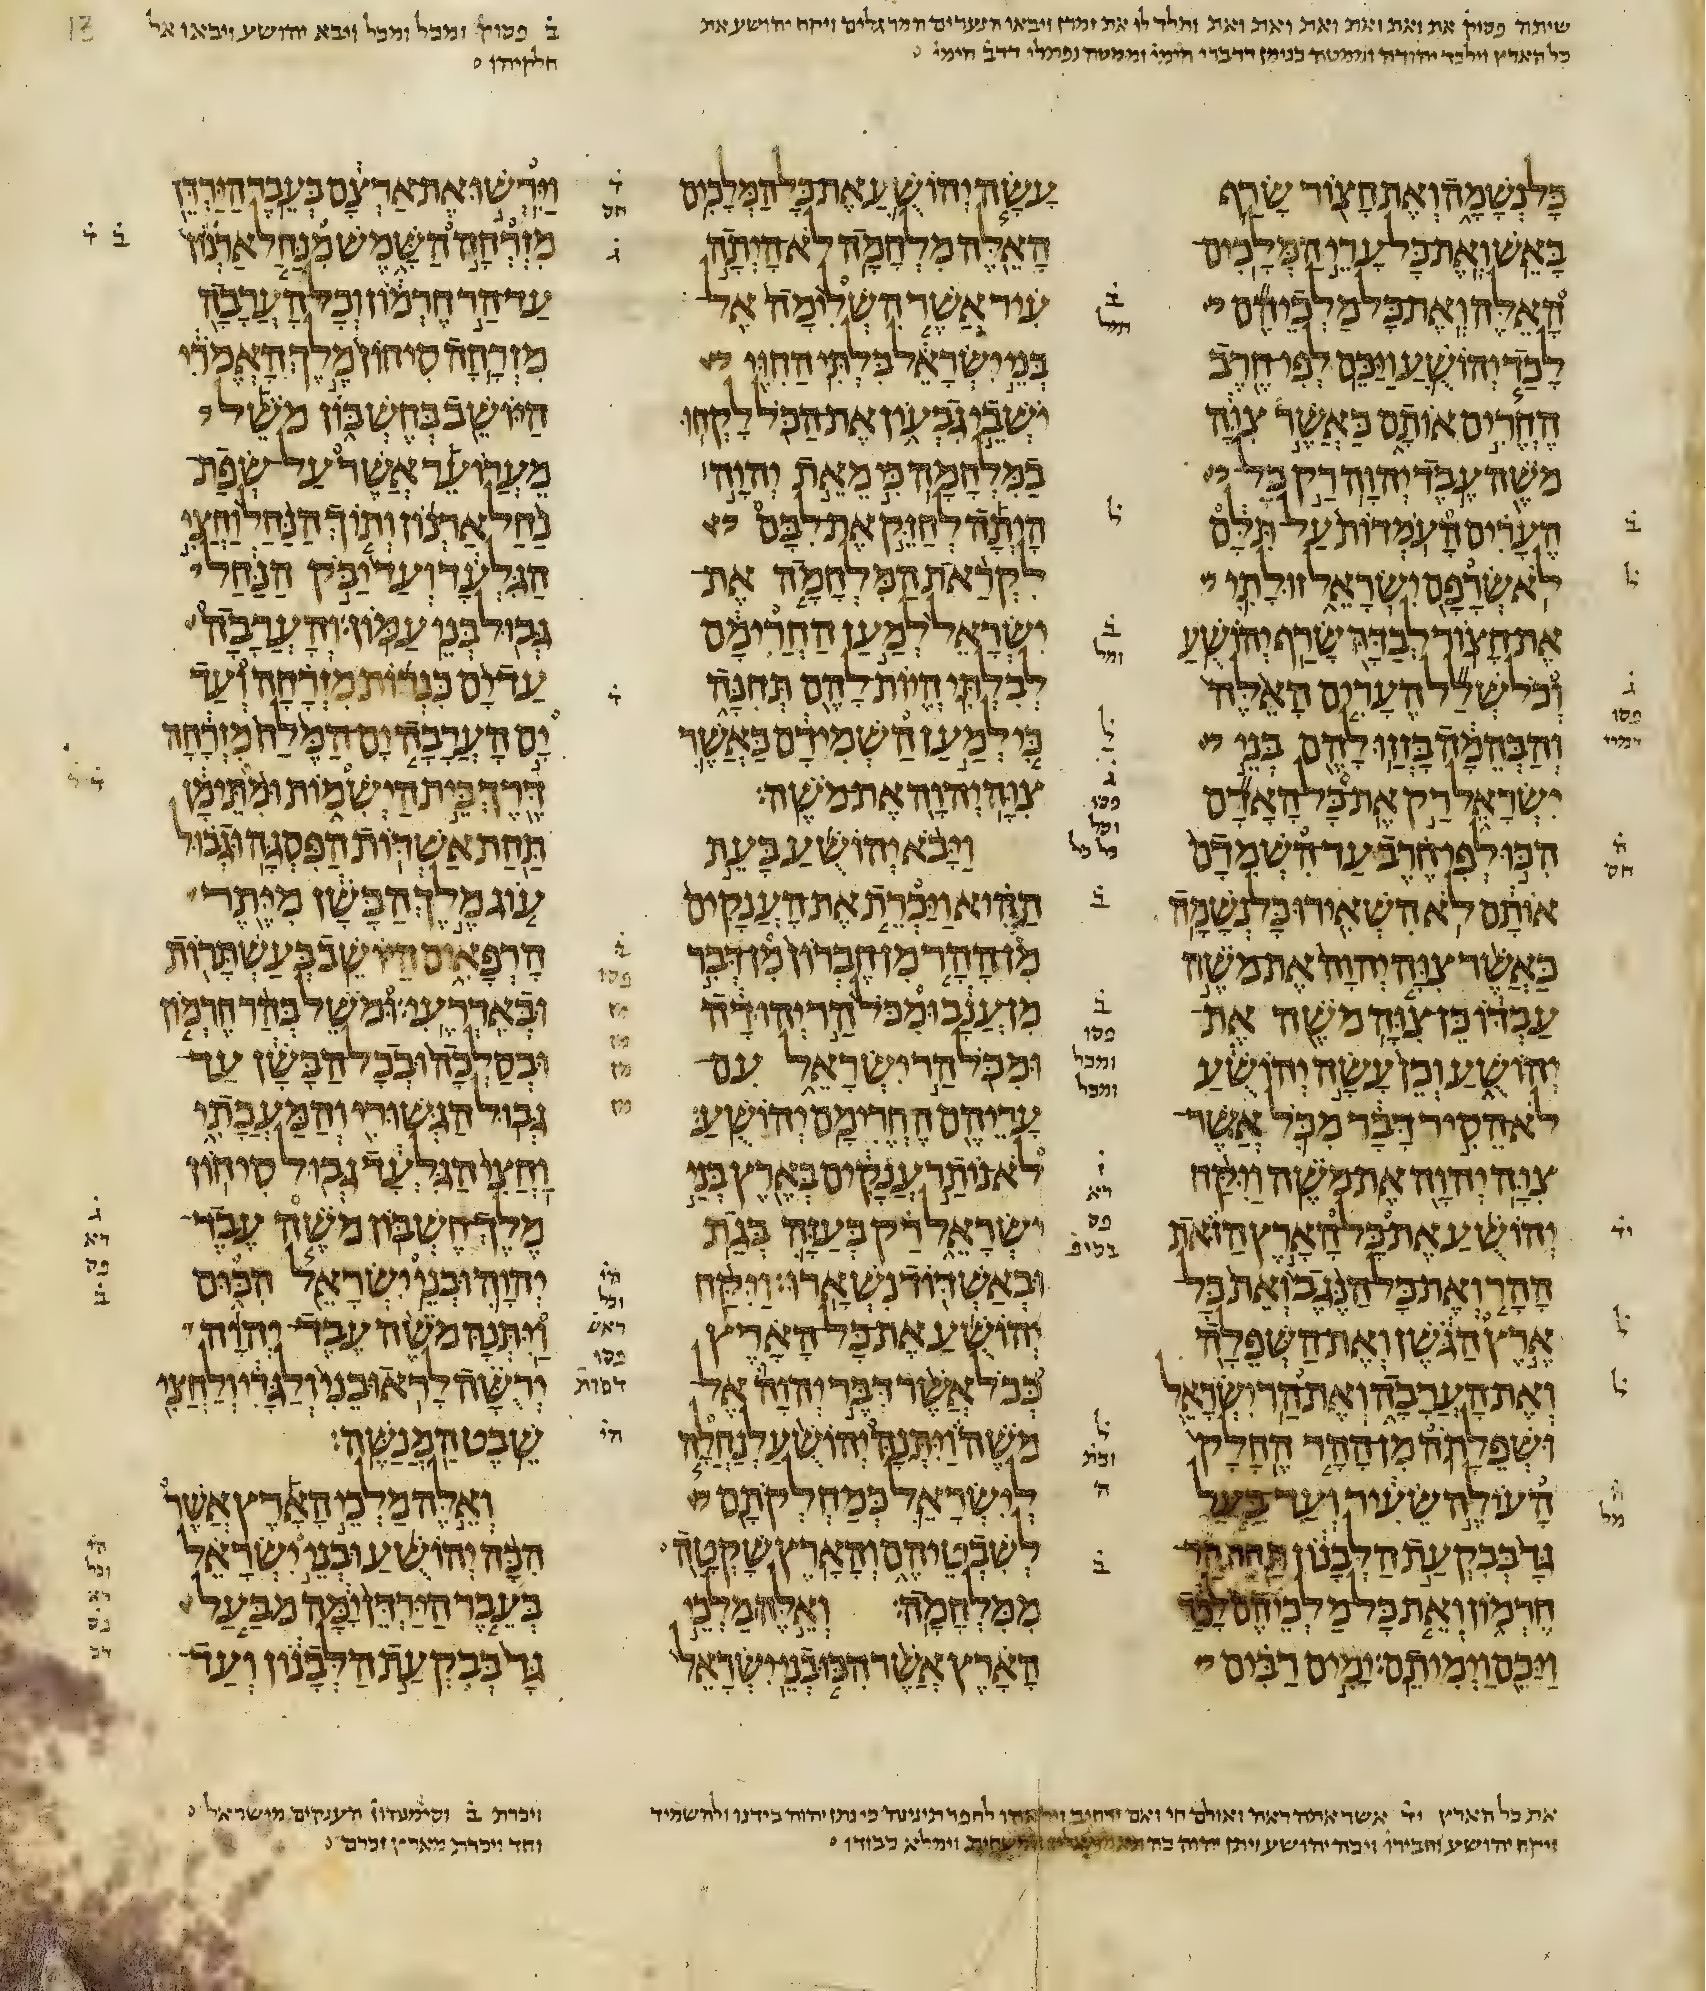 שיתה פסוק את ואת ואת ואת ואת ואת ותלד לו את זמרן ויבאו הנערים המרגלים ויקח יהושע את
כל הארץ וילכד יהודה וממטה בנימן דדברי הימי וממטה נפתלי דדב הימי
ב פסוק ומכל ומכל ויבא יהושע ויבאו אל
חלקיהו
כל נשמה ואת חצור שרף
באש ואת כל ערי המלכים
האלה ואת כל מלכיהם
לכד יהושע ויכם לפי חרב
החרים אותם כאשר צוה
משה עבד יהוה רק כל
הערים העמדות על תלם
לא שרפם ישראל זולתי
את חצור לבדה שרף יהושע
וכל שלל הערים האלה
והבהמה בזזו להם בני
ישראל רק את כל האדם
הכו לפי חרב עד השמדם
אותם לא השאירו כל נשמה
כאשר צוה יהוה את משה
עבדו כן צוה משה את
יהושע וכן עשה יהושע
לא הסיר דבר מכל אשר
צוה יהוה את משה ויקח
יהושע את כל הארץ הזאת
ההר ואת כל הנגב ואת כל
ארץ הגשן ואת השפלה
ואת הערבה ואת הר ישראל
ושפלתה מן ההר החלק
העולה שעיר ועד בעל
גד בבקעת הלבנון תחת הר
חרמון ואת כל מלכיהם לכד
ויכם וימיתם׃ ימים רבים
עשה יהושע את כל המלכים
האלה מלחמה לא היתה
עיר אשר השלימה אל
בני ישראל בלתי החוי
ישבי גבעון את הכל לקחו
במלחמה כי מאת יהוה
היתה לחזק את לבם
לקראת המלחמה את
ישראל למען החרימם
לבלתי היות להם תחנה
כי למען השמידם כאשר
צוה יהוה את משה׃
ויבא יהושע בעת
ההיא ויכרת את הענקים
מן ההר מן חברון מן דבר
מן ענב ומכל הר יהודה
ומכל הר ישראל עם
עריהם החרימם יהושע׃
לא נותר ענקים בארץ בני
ישראל רק בעזה בגת
ובאשדוד נשארו׃ ויקח
יהושע את כל הארץ
ככל אשר דבר יהוה אל
משה ויתנה יהושע לנחלה
לישראל כמחלקתם
לשבטיהם והארץ שקטה
ממלחמה׃ ואלה מלכי
הארץ אשר הכו בני ישראל
וירשו את ארצם בעבר הירדן
מזרחה השמש מנחל ארנון
עד הר חרמון וכל הערבה
מזרחה סיחון מלך האמרי
היושב בחשבון משל
מערוער אשר על שפת
נחל ארנון ותוך הנחל וחצי
הגלעד ועד יבק הנחל
גבול בני עמון׃ והערבה
עד ים כנרות מזרחה ועד
ים הערבה ים המלח מזרחה
דרך בית הישמות ומתימן
תחת אשדות הפסגה׃ וגבול
עוג מלך הבשן מיתר
הרפאים היושב בעשתרות
ובאדרעי׃ ומשל בהר חרמון
ובסלכה ובכל הבשן עד
גבול הגשורי והמעכתי
וחצי הגלעד גבול סיחון
מלך חשבון משה עבד
יהוה ובני ישראל הכום
ויתנה משה עבד יהוה
ירשה לראובני ולגדי ולחצי
שבט המנשה׃
ואלה מלכי הארץ אשר
הכה יהושע ובני ישראל
בעבר הירדן ימה מבעל
גד בבקעת הלבנון ועד
את כל הארץ יד אשר אתה ראה ואולם חי ואם לחפר תיניעה כי נתן יהוה בידנו ולהשמיד
ויקח יהושע וחבירו ויכה יהושע ויתן יהוה וימלא כבודו
ויכרת ב וסימנהון הענקים מישראל
וחד ויכרת מארץ זכרם